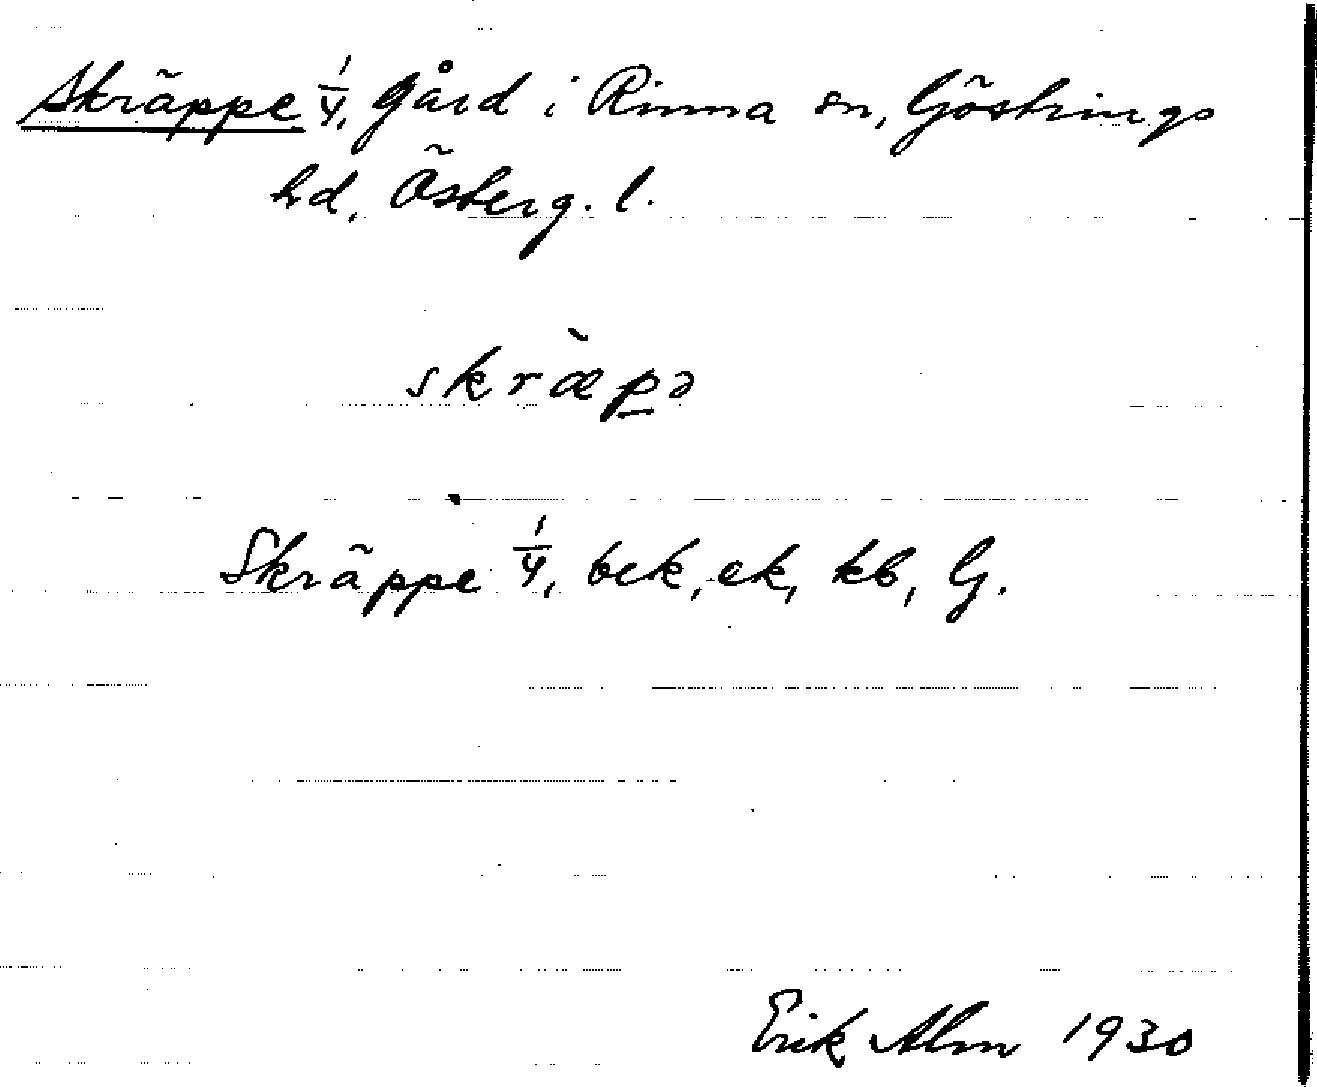 Skräppe 1/4, gård i Rinna sn, Göstrings
hd, Österg. l.
skræ̀p̲ə
Skräppe 1/4, bck, ek, kb, G.
Erik Alm 1930